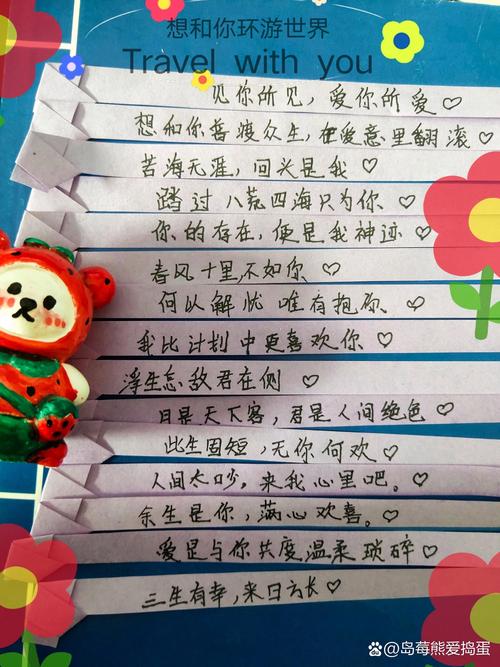 想和你环游世界
Travel with you
见你所见，爱你所爱♡
想和你普渡众生，在爱意里翻滚♡
苦海无涯，回头是我♡
踏过八荒四海只为你♡
你的存在，便是我神迹♡
春风十里，不如你♡
何以解忧 唯有抱你♡
我比计划中更喜欢你♡
浮生怎敌君在侧♡
月是天下客，君是人间绝色♡
此生固短，无你何欢♡
人间太吵，来我心里吧。♡
余生是你，满心欢喜。♡
爱是与你共度温柔琐碎♡
三生有幸，来日方长♡
岛莓熊爱捣蛋